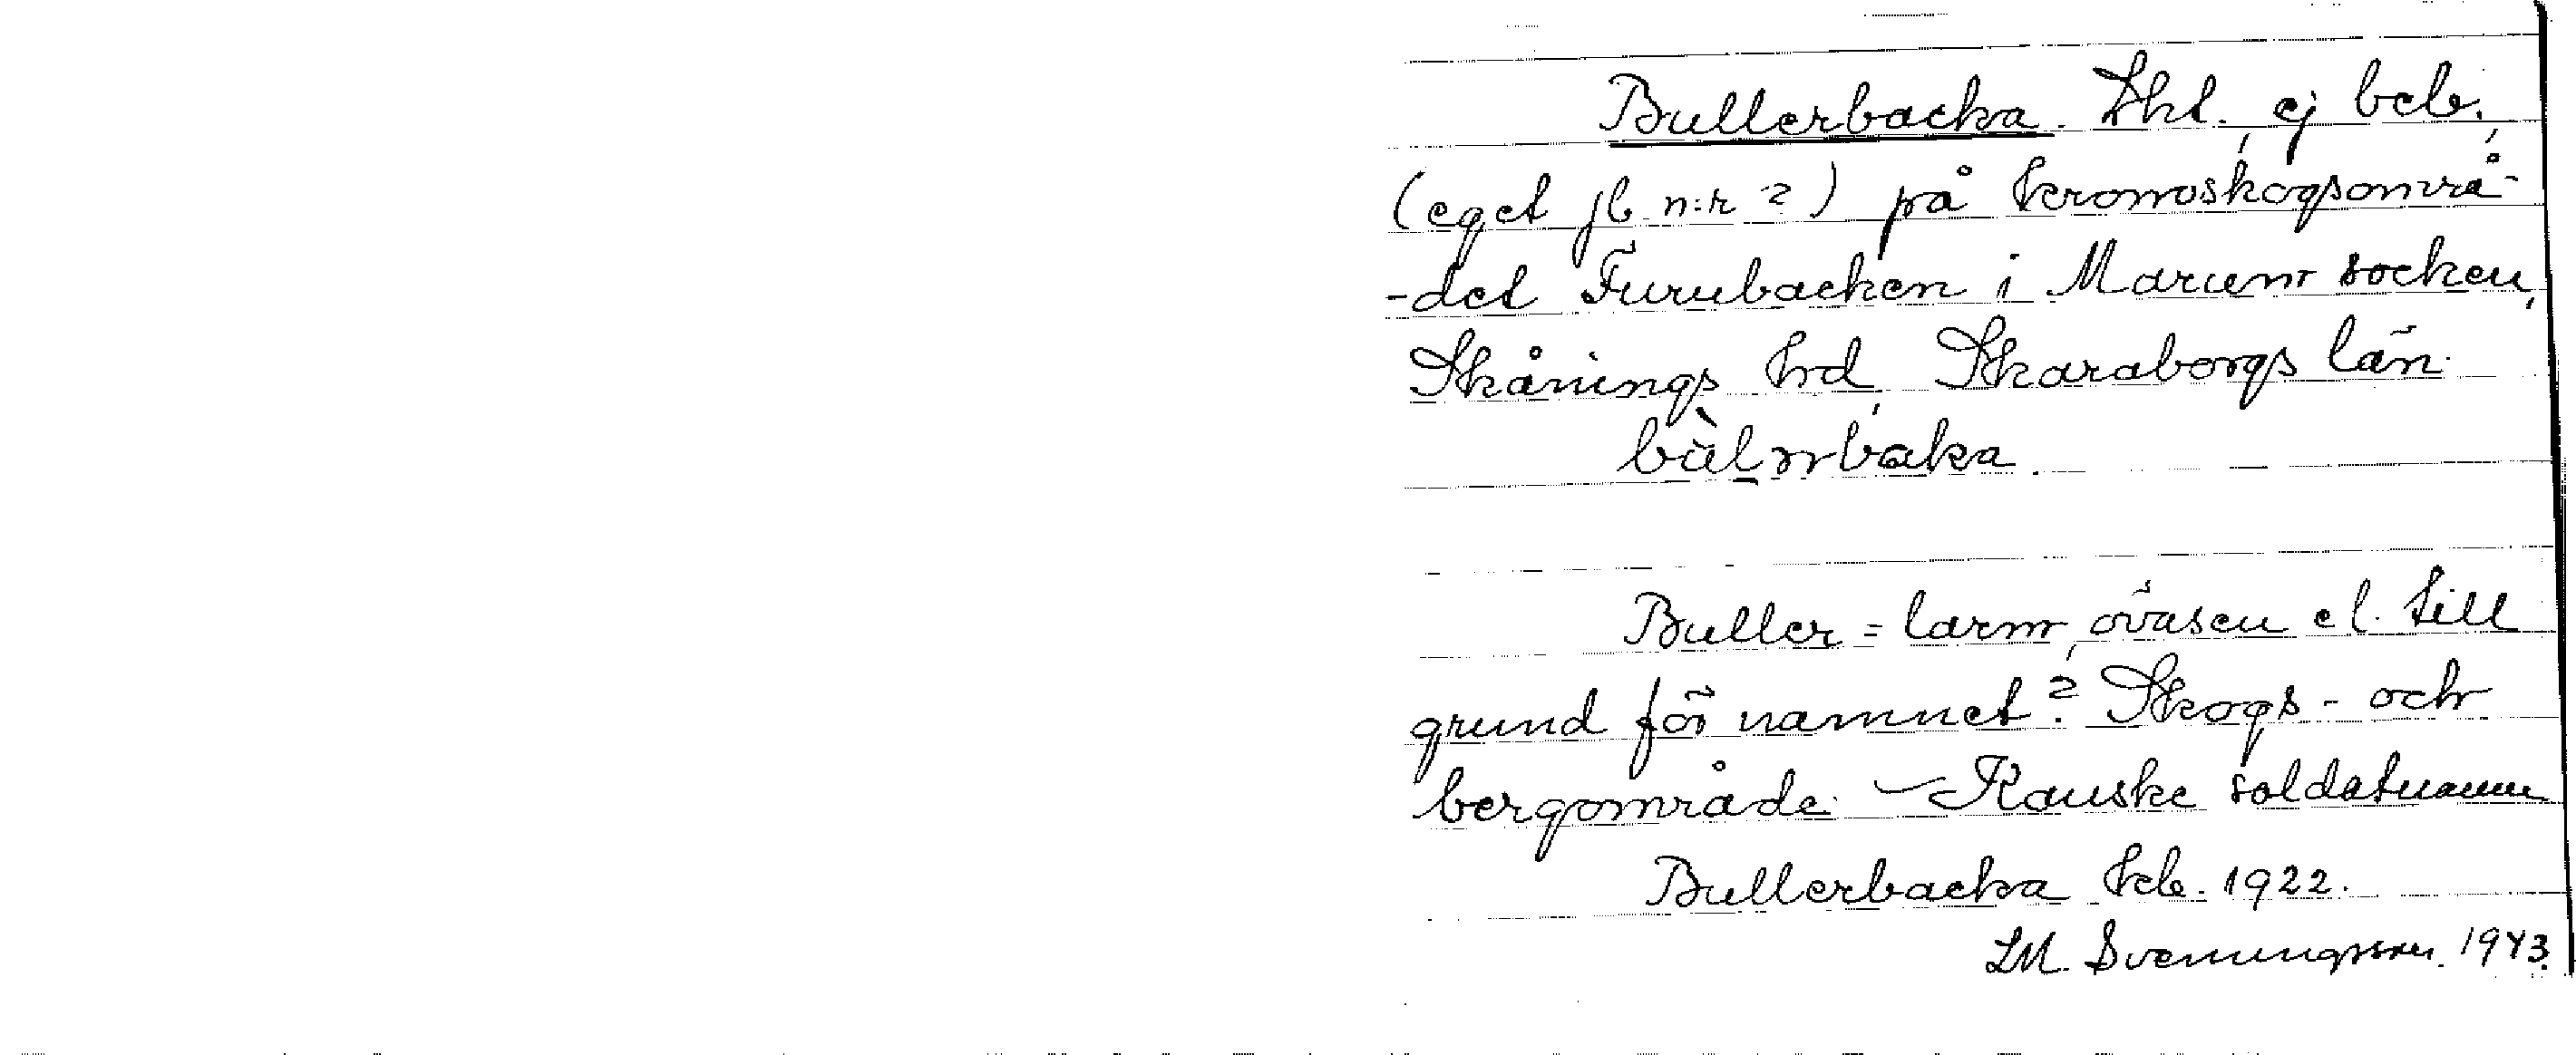 Bullerbacka. Lht., ej beb.,
(eget jb n:r ?) på kronoskogsområ-
-det Furubacken i Marum socken,
Skånings hrd, Skaraborgs län.
Buller = larm, oväsen el. till
grund för namnet? Skogs- och
bergområde. – Kanske soldatnamn
Bullerbacka kb. 1922.
LM. Svenungsson. 1943.